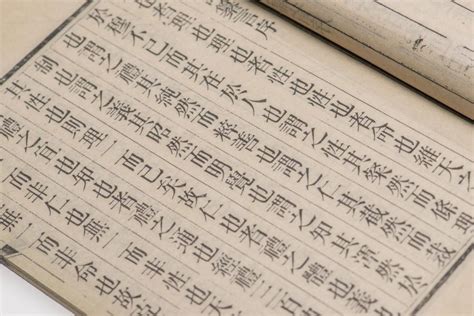 纂言序
也者理也理也者性也性也者命也維天
於穆不已而其在於人也謂之性其粲然而條理
也謂之禮其純然而粹善也謂之仁其截然而裁
制也謂之義其昭然而明覺也謂之知其渾然於
其性也則理一而已矣故仁也者禮之體也義
禮之宜也知也者禮之通也經禮三百
而非仁也無一而非性也
無一而非命也故